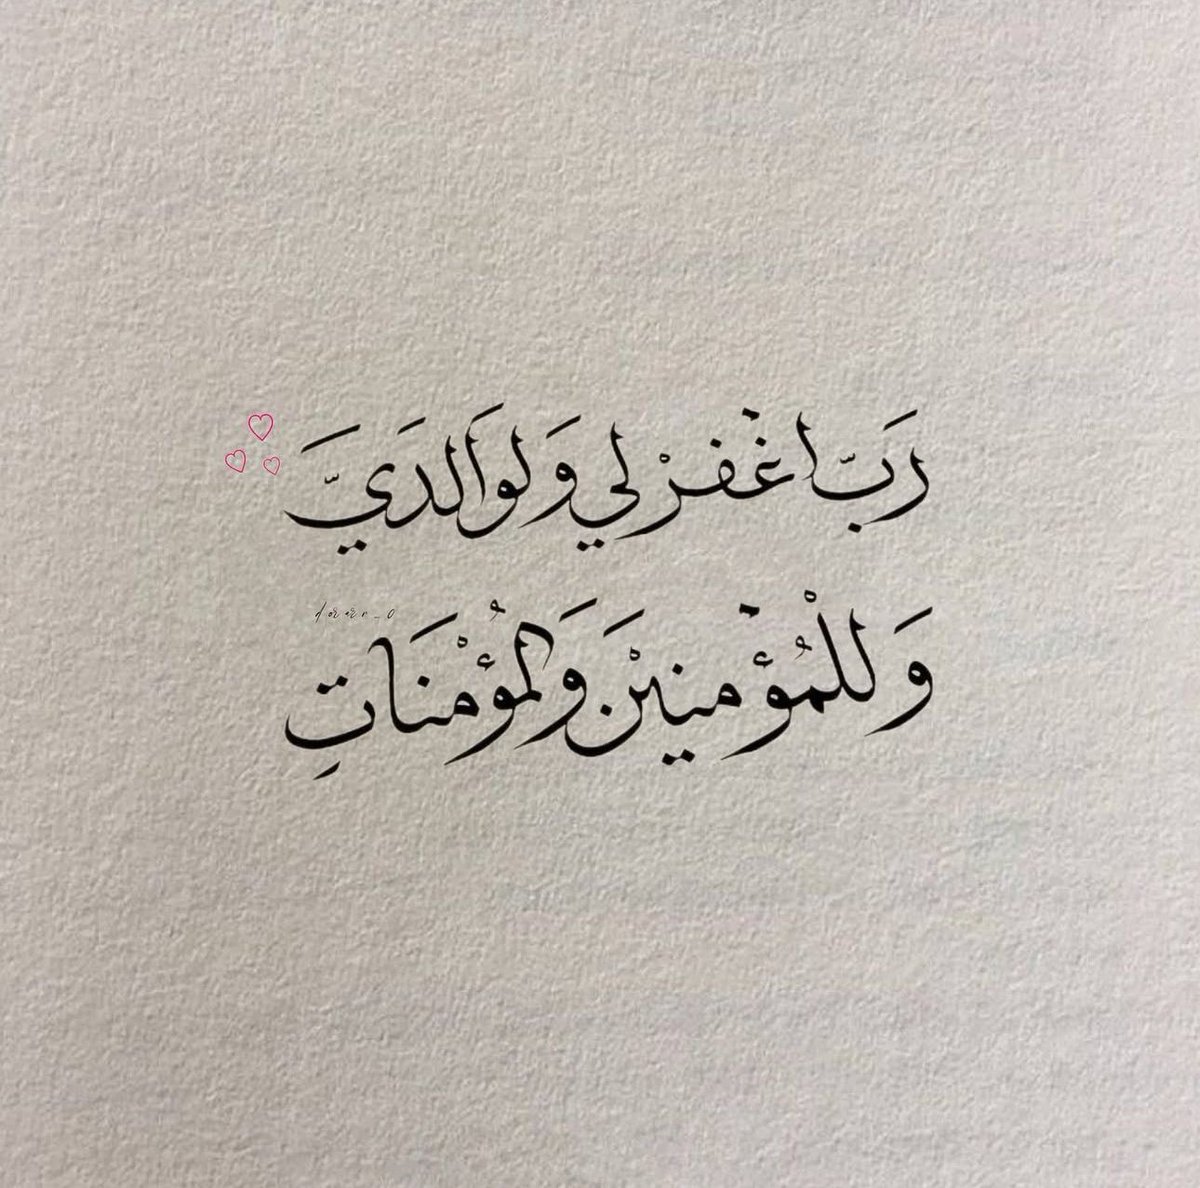 رَبِّ اغْفِرْ لِي وَلوَالدَيَّ
وَللْمُؤْمنينَ وَالمُؤْمنَاتِ